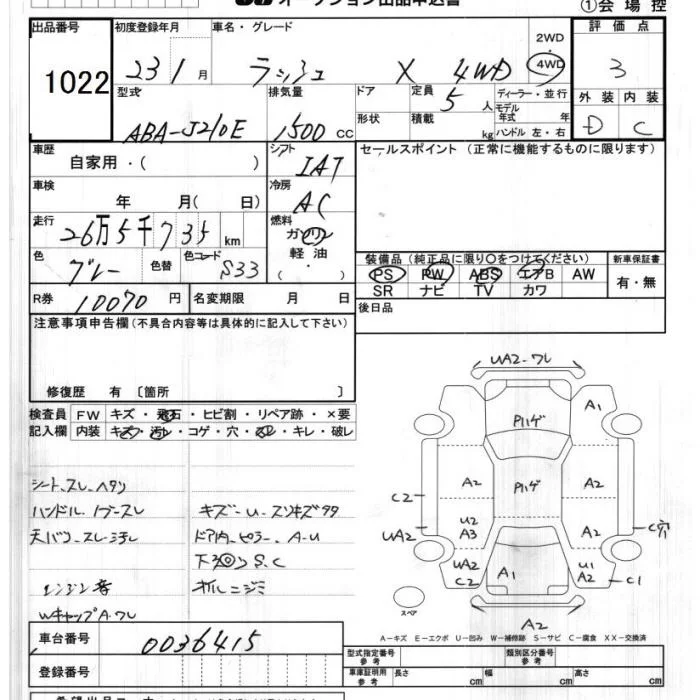 オークション出品申込書
①会 場 控
出品番号
1022
初度登録年月
23 1 月
車名・グレード
ラッシュ X 4WD
2WD
・
4WD
評 価 点
3
外 装 内 装
D C
型式
ABA-J210E
排気量
1500 cc
ドア
形状
定員
5 人
積載
kg
ディーラー・並行
モデル年式 年
ハンドル 左・右
車歴
自家用・( )
シフト
IAT
セールスポイント (正常に機能するものに限ります)
車検
年 月( 日)
冷房
AC
走行
26万5千735 km
燃料
ガソリン
軽 油
( ・ )
色
グレー
色替
色コード
S33
装備品(純正品に限り〇をつけてください)
PS PW ABS エアB AW
SR ナビ TV カワ
新車保証書
有・無
R券
10070 円
名変期限 月 日
後日品
注意事項申告欄(不具合内容等は具体的に記入して下さい)
修復歴 有 〔箇所 〕
検査員
記入欄
FW キズ・飛石・ヒビ割・リペア跡・×要
内装 キズ・汚レ・コゲ・穴・スレ・キレ・破レ
シート、スレ、ヘタリ
ハンドル、ノブースレ
キズ-U-スリキズタタ
天バリ、スレ-汚レ
ドア内、ピラー、A-U
S.C
エンジン音
オイルニジミ
WキャップA.ワレ
UA2-ワレ
A1
Pハゲ
A2
Pハゲ
A2
C2
UA2
U2
A3
A2
C穴
UA2
C2
A1
U1
A2
C1
スペア
A2
A-キズ E-エクボ U-凹み W-補修跡 S-サビ C-腐食 XX-交換済
車台番号
0036415
登録番号
型式指定番号
参 考
類別区分番号
参 考
車庫証明用
参 考
長さ cm
幅 cm
高さ cm